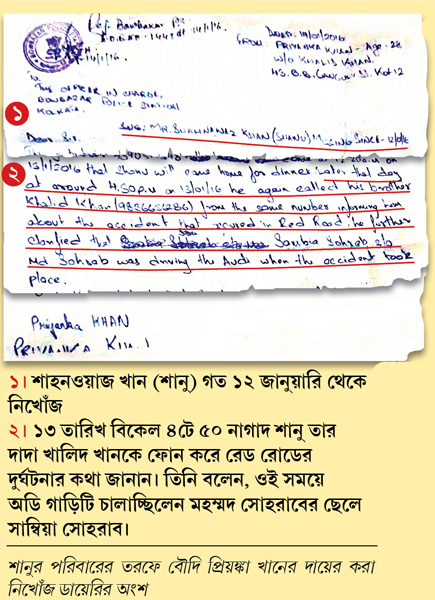 14/1/16
DATED. 14/01/2016
FROM, PRIYANKA KHAN - Age - 28
W/O KHALID KHAN.
To
THE OFFICER IN CHARGE,
BOWBAZAR POLICE STATION
KOLKATA.
১
Dear Sir,
SUB: MR. SHAHNAWAZ KHAN (SHANU) MISSING SINCE - 12/01/16
২
13/1/2016 that Shanu will come home for dinner. Later that day
at around 4.50 p.m on 13/01/16 he again called his brother
Khalid Khan from the same number informing him
about the accident that occured in Red Road. he further
clarified that Sambia Sohrab s/o
Md Sohrab was driving the Audi when the accident took
place.
Priyanka KHAN
PRIYANKA KHAN
১। শাহনওয়াজ খান (শানু) গত ১২ জানুয়ারি থেকে
নিখোঁজ
২। ১৩ তারিখ বিকেল ৪টে ৫০ নাগাদ শানু তার
দাদা খালিদ খানকে ফোন করে রেড রোডের
দুর্ঘটনার কথা জানান। তিনি বলেন, ওই সময়ে
অডি গাড়িটি চালাচ্ছিলেন মহম্মদ সোহরাবের ছেলে
সাম্বিয়া সোহরাব।
শানুর পরিবারের তরফে বৌদি প্রিয়ঙ্কা খানের দায়ের করা
নিখোঁজ ডায়েরির অংশ